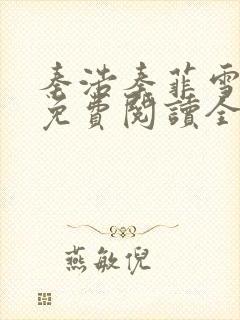 秦浩秦菲雪
免費閱讀全
燕敏倪